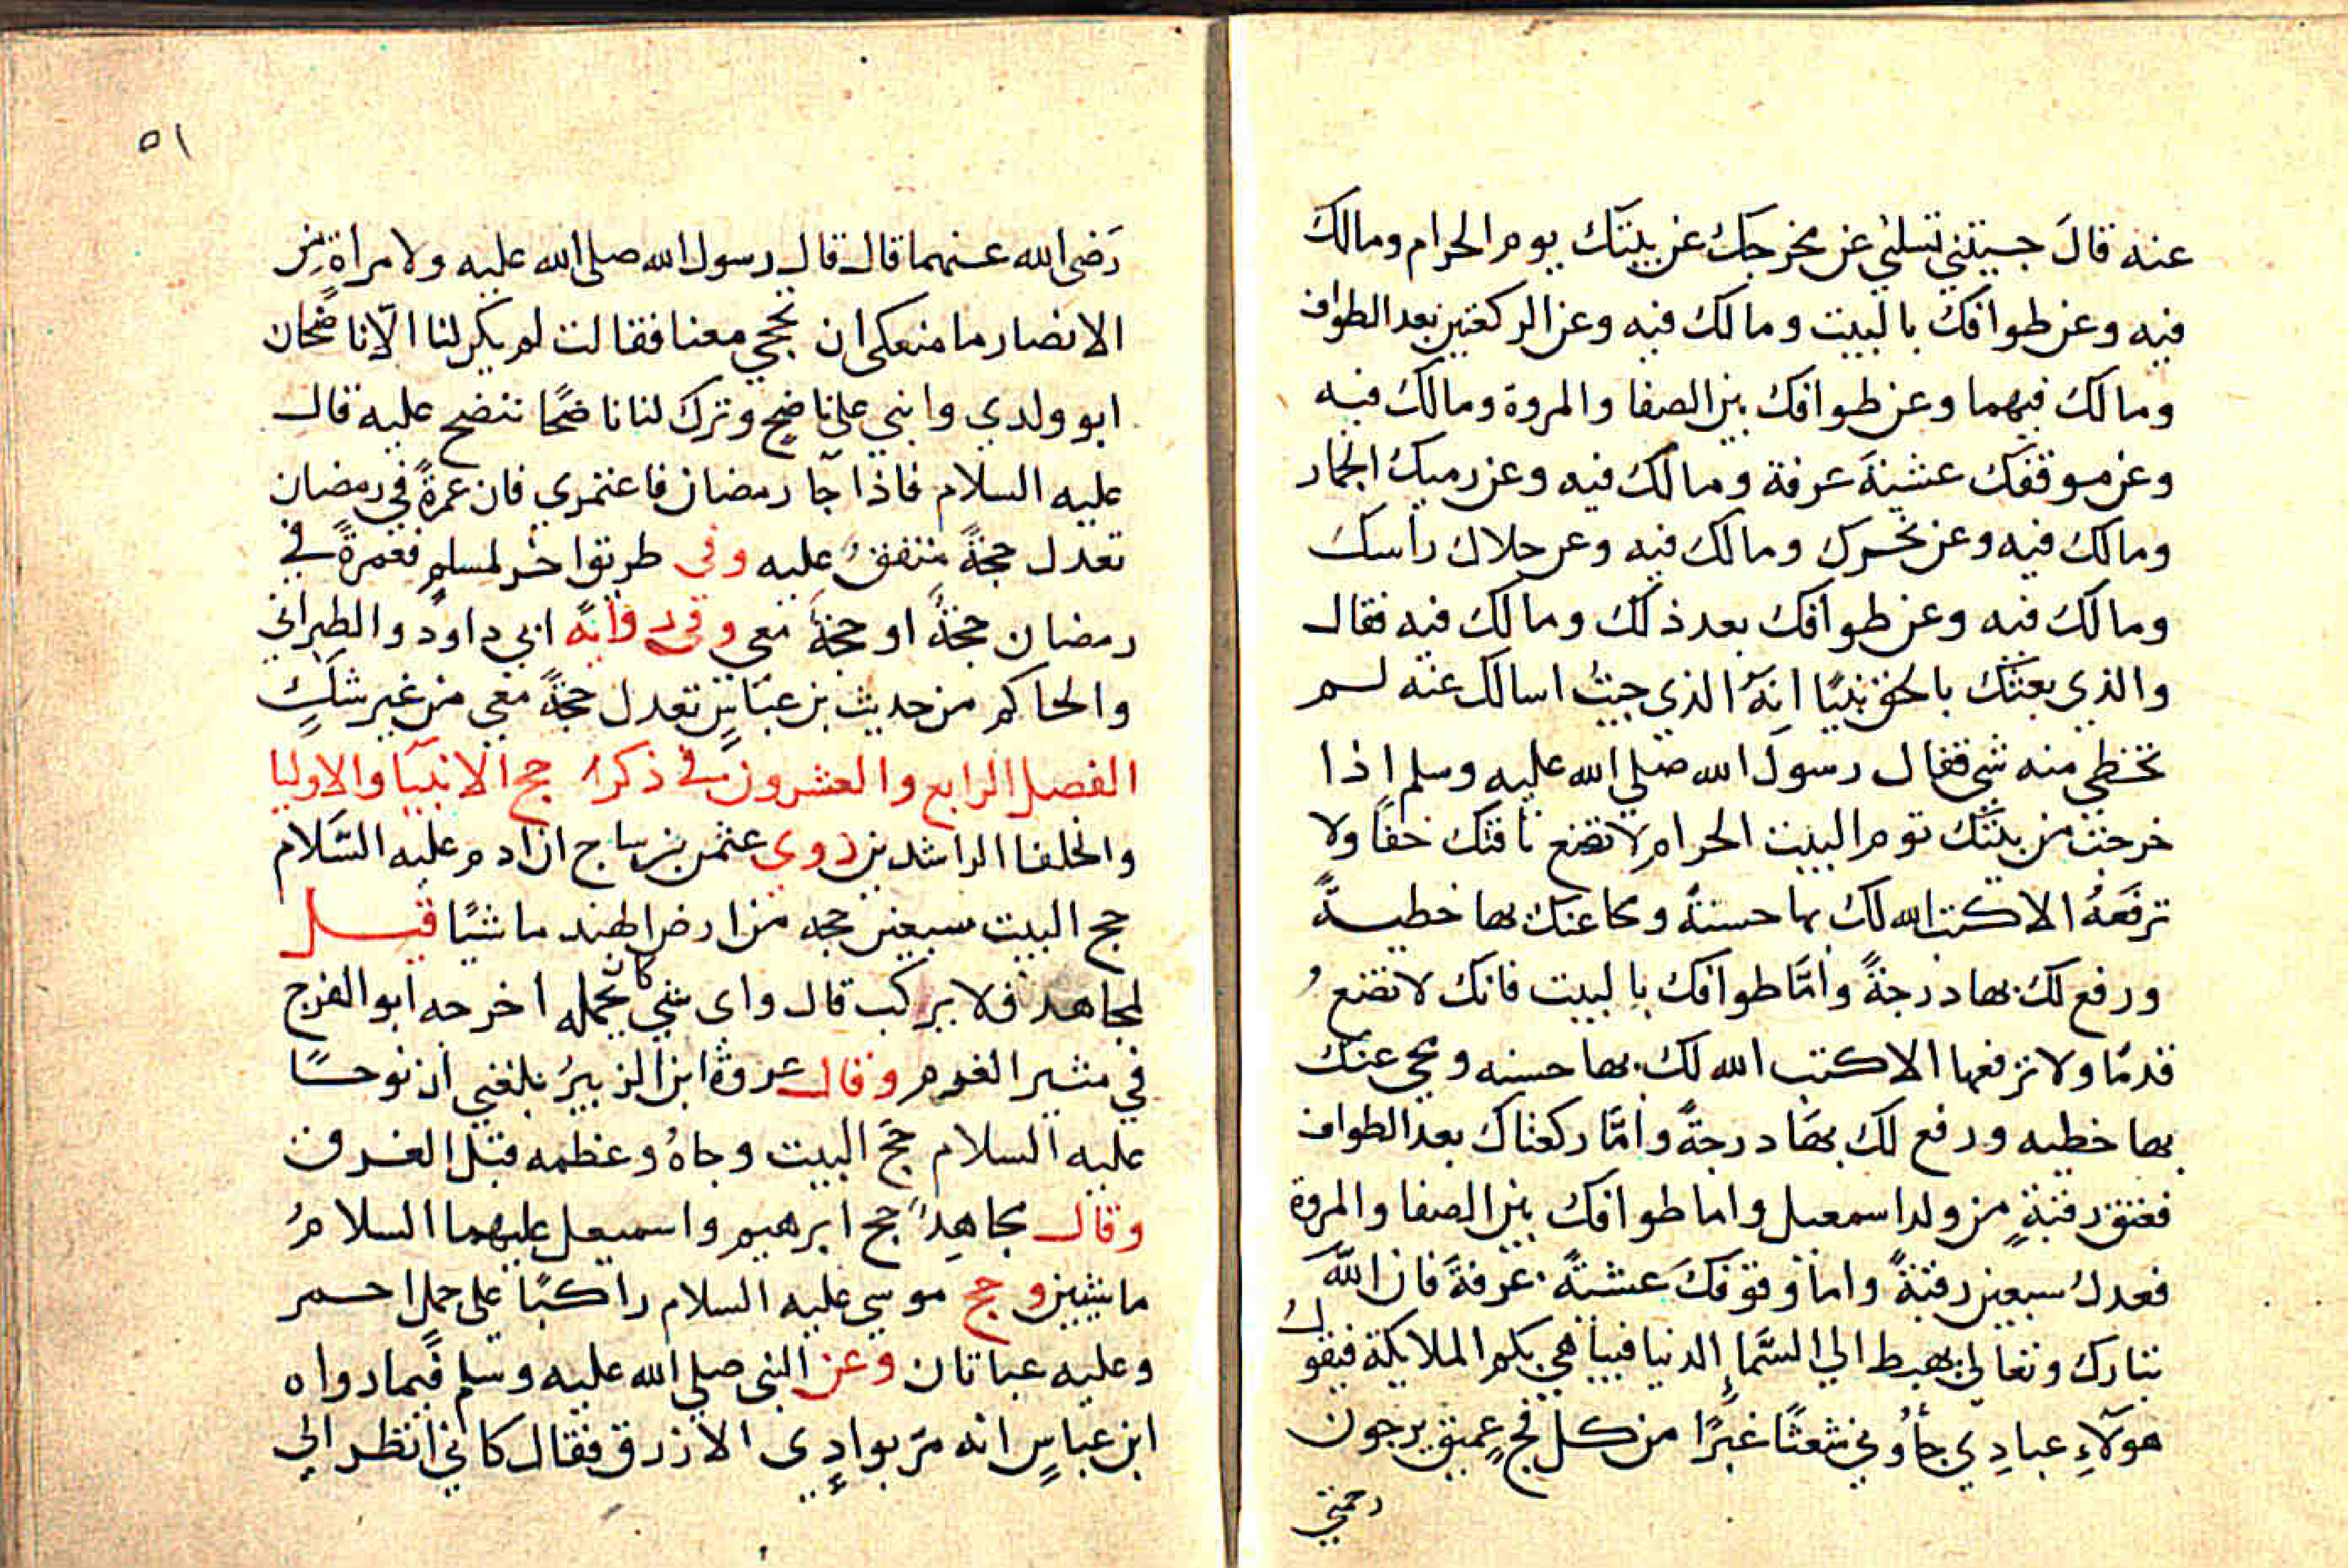 عنه قال جيتني تسلني عن مخرجك عن بيتك يوم الحرام ومالك
فيه وعن طوافك بالبيت ومالك فيه وعن الركعتين بعد الطواف
ومالك فيهما وعن طوافك بين الصفا والمروة ومالك فيه
وعن موقفك عشية عرفة ومالك فيه وعن رميك الجمار
ومالك فيه وعن نحرك ومالك فيه وعن حلاك راسك
ومالك فيه وعن طوافك بعد ذلك ومالك فيه فقال
والذي بعثك بالحق نبيا انه الذي جيت اسالك عنه لم
تخطي منه شي فقال رسول الله صلي الله عليه وسلم اذا
خرجت من بيتك توم البيت الحرام لا تضع ناقتك خفا ولا
ترفعه الا كتب الله لك بها حسنة ومحا عنك بها خطية
ورفع لك بها درجة واما طوافك بالبيت فانك لا تضع
قدما ولا ترفعها الا كتب الله لك بها حسنه ومحي عنك
بها خطيه ورفع لك بها درجة واما ركعتاك بعد الطواف
فعتق رقبة من ولد اسمعيل واما طوافك بين الصفا والمروة
فعدل سبعين رقبة واما وقوفك عشية عرفة فان الله
تبارك وتعالي يهبط الي السماء الدنيا فيباهي بكم الملايكة فيقول
هولاء عبادي جاؤني شعثا غبرا من كل فج عميق يرجون
رحمتي
٥١
رضي الله عنهما قال قال رسول الله صلي الله عليه ولامراة من
الانصار ما منعكي ان تحجي معنا فقالت لم يكن لنا الا ناضحان
ابو ولدي وابني علي ناضح وترك لنا ناضحا ننضح عليه قال
عليه السلام فاذا جا رمضان فاعتمري فان عمرة في رمضان
تعدل حجة متفق عليه وفي طريق اخر لمسلم فعمرة في
رمضان حجة او حجة معي وفي رواية ابي داود والطبراني
والحاكم من حديث بن عباس تعدل حجة معي من غير شك
الفصل الرابع والعشرون في ذكر حج الانبيا والاوليا
والخلفا الراشدين روي عثمن بن ساج ان ادم عليه السلام
حج البيت سبعين حجه من ارض الهند ماشيا قيل
لمجاهد فلا يركب قال واي شي كان يحمله اخرجه ابو الفرج
في مثير الغرم وقال عروة ابن الزبير بلغني ان نوحا
عليه السلام حج البيت وجاه وعظمه قبل الغرق
وقال مجاهد حج ابرهيم واسمعيل عليهما السلام
ماشيين وحج موسي عليه السلام راكبا علي جمل احمر
وعليه عباتان وعن النبي صلي الله عليه وسلم فيما رواه
ابن عباس انه مر بوادي الازرق فقال كاني انظر الي